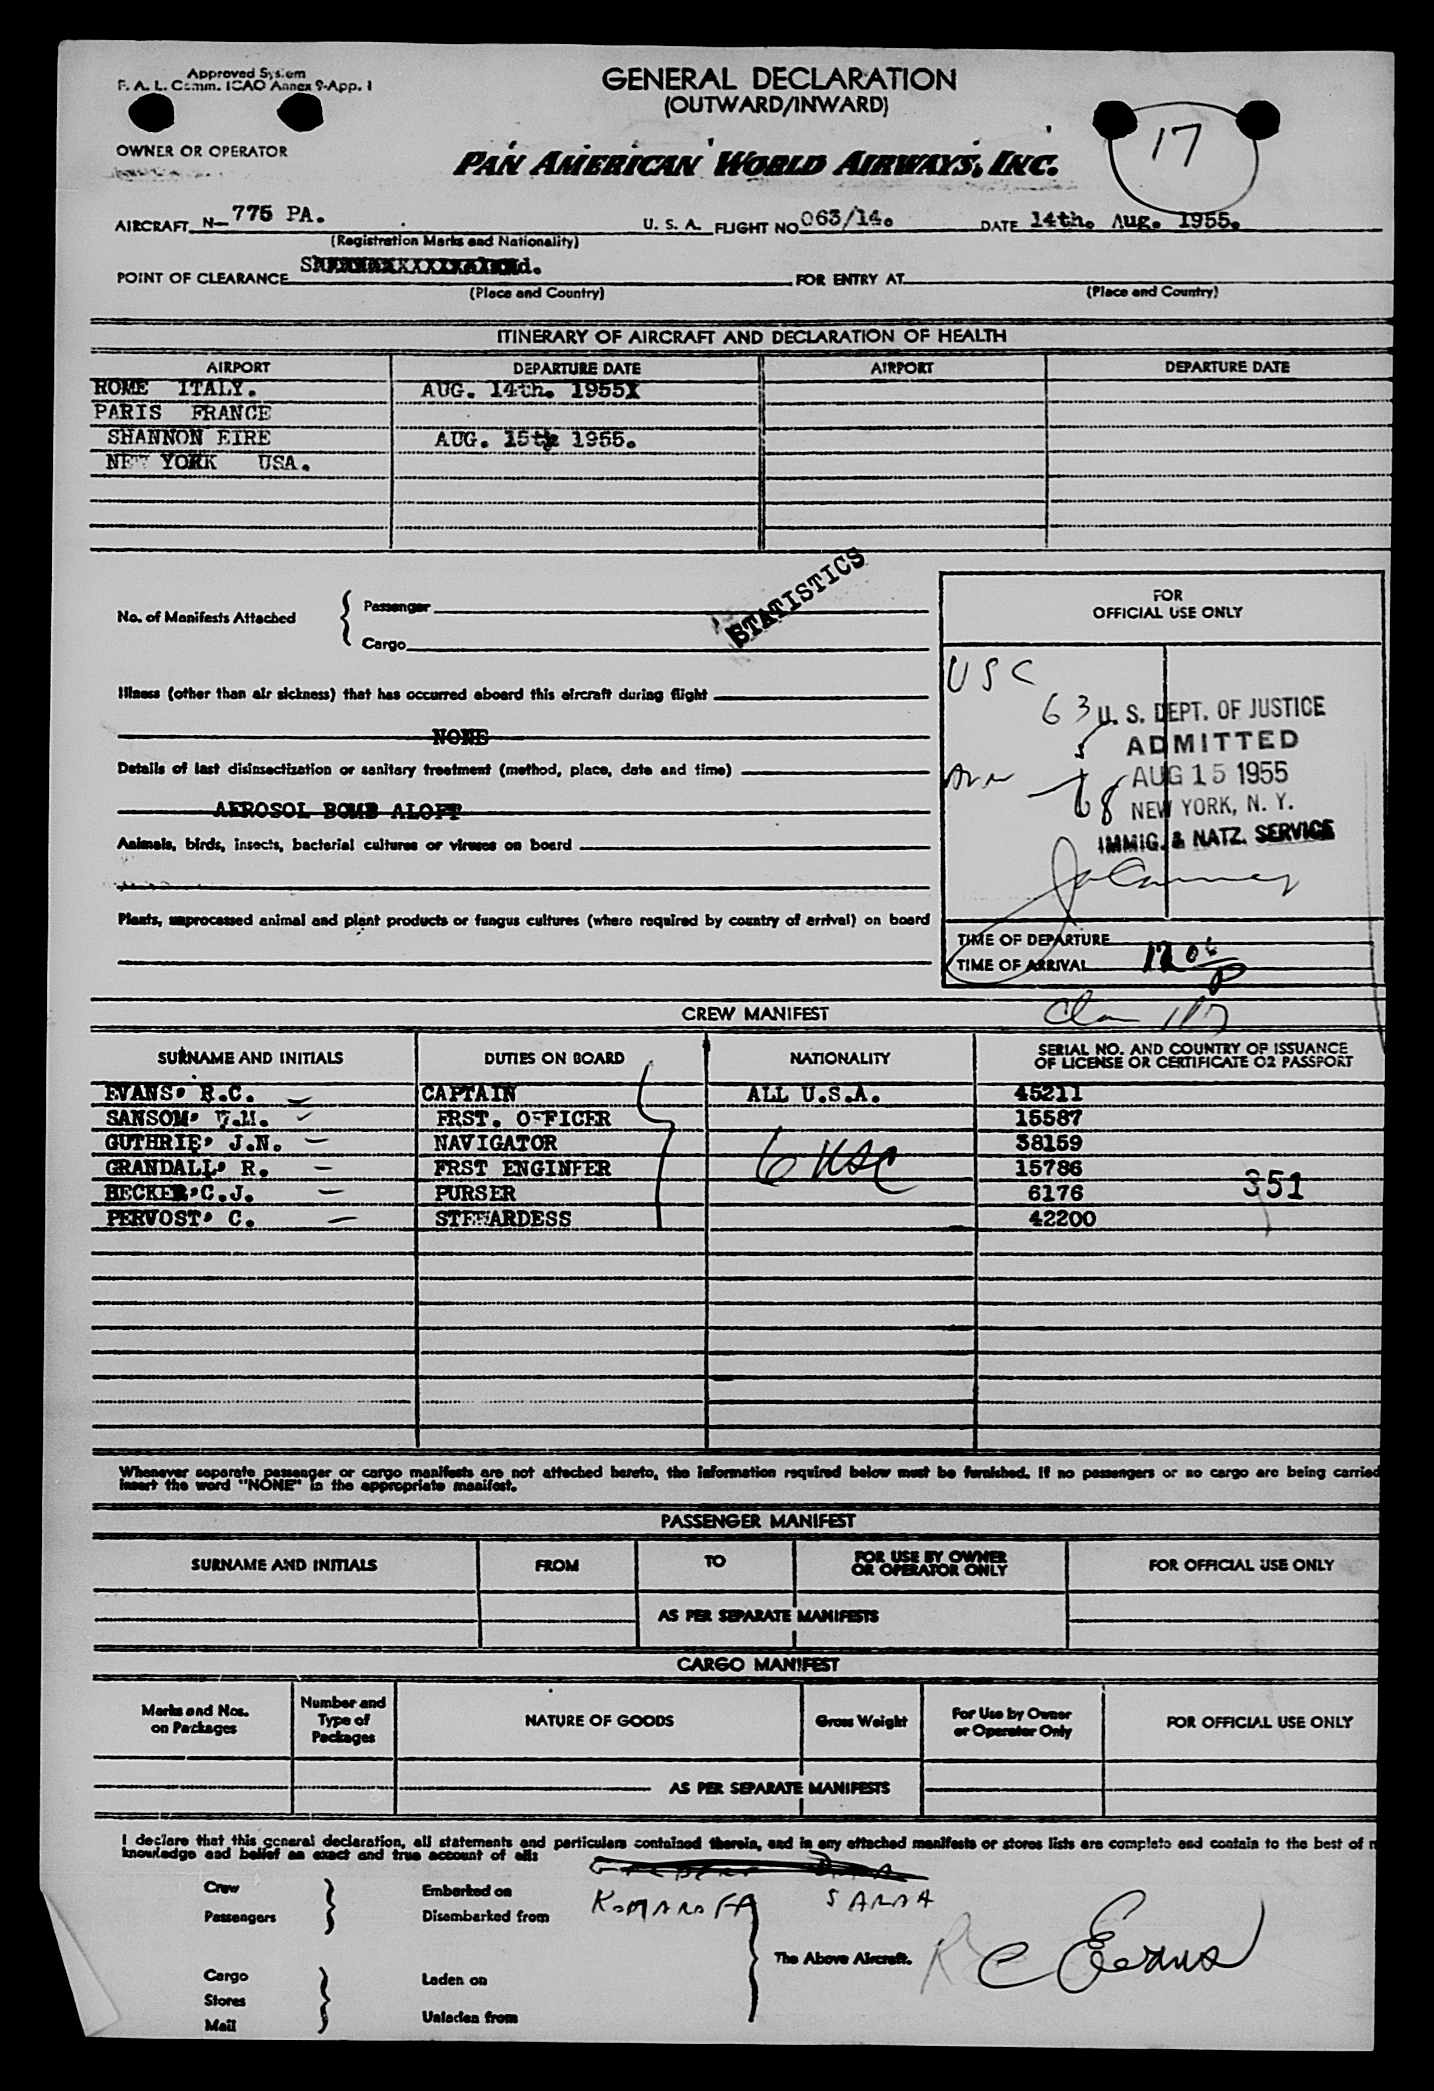 Approved System
F. A. L. Comm. ICAO Annex 9-App. 1
GENERAL DECLARATION
(OUTWARD/INWARD)
17
OWNER OR OPERATOR
PAN AMERICAN WORLD AIRWAYS, INC.
AIRCRAFT N- 775 PA. U. S. A. FLIGHT NO 063/14. DATE 14th. Aug. 1955.
(Registration Marks and Nationality)
POINT OF CLEARANCE FOR ENTRY AT
(Place and Country) (Place and Country)
ITINERARY OF AIRCRAFT AND DECLARATION OF HEALTH
AIRPORT DEPARTURE DATE AIRPORT DEPARTURE DATE
ROME ITALY. AUG. 14th. 1955X
PARIS FRANCE
SHANNON EIRE AUG. 15th 1955.
NEW YORK USA.
STATISTICS
No. of Manifests Attached { Passenger
Cargo
FOR
OFFICIAL USE ONLY
Illness (other than air sickness) that has occurred aboard this aircraft during flight
NONE
Details of last disinsectization or sanitary treatment (method, place, date and time)
AEROSOL BOMB ALOFT
Animals, birds, insects, bacterial cultures or viruses on board
Plants, unprocessed animal and plant products or fungus cultures (where required by country of arrival) on board
USC
63
5
68
U. S. DEPT. OF JUSTICE
ADMITTED
AUG 15 1955
NEW YORK, N. Y.
IMMIG. & NATZ. SERVICE
TIME OF DEPARTURE
TIME OF ARRIVAL 1206 P
CREW MANIFEST
SURNAME AND INITIALS DUTIES ON BOARD NATIONALITY SERIAL NO. AND COUNTRY OF ISSUANCE
OF LICENSE OR CERTIFICATE OR PASSPORT
EVANS, R.C. CAPTAIN ALL U.S.A. 45211
SANSOM, W.M. FRST. OFFICER 15587
GUTHRIE, J.N. NAVIGATOR 38159
GRANDALL, R. FRST ENGINEER 6 USC 15786
BECKER, C.J. PURSER 6176 351
PERVOST, C. STEWARDESS 42200
Whenever separate passenger or cargo manifests are not attached hereto, the information required below must be furnished. If no passengers or no cargo are being carried
insert the word "NONE" in the appropriate manifest.
PASSENGER MANIFEST
SURNAME AND INITIALS FROM TO FOR USE BY OWNER
OR OPERATOR ONLY FOR OFFICIAL USE ONLY
AS PER SEPARATE MANIFESTS
CARGO MANIFEST
Marks and Nos.
on Packages Number and
Type of
Packages NATURE OF GOODS Gross Weight For Use by Owner
or Operator Only FOR OFFICIAL USE ONLY
AS PER SEPARATE MANIFESTS
I declare that this general declaration, all statements and particulars contained therein, and in any attached manifests or stores lists are complete and contain to the best of
knowledge and belief an exact and true account of all:
Crew Embarked on KOMAROFF SARAA
Passengers Disembarked from
The Above Aircraft. R C Evans
Cargo Laden on
Stores
Mail Unladen from